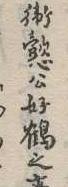 衛懿公好鶴之